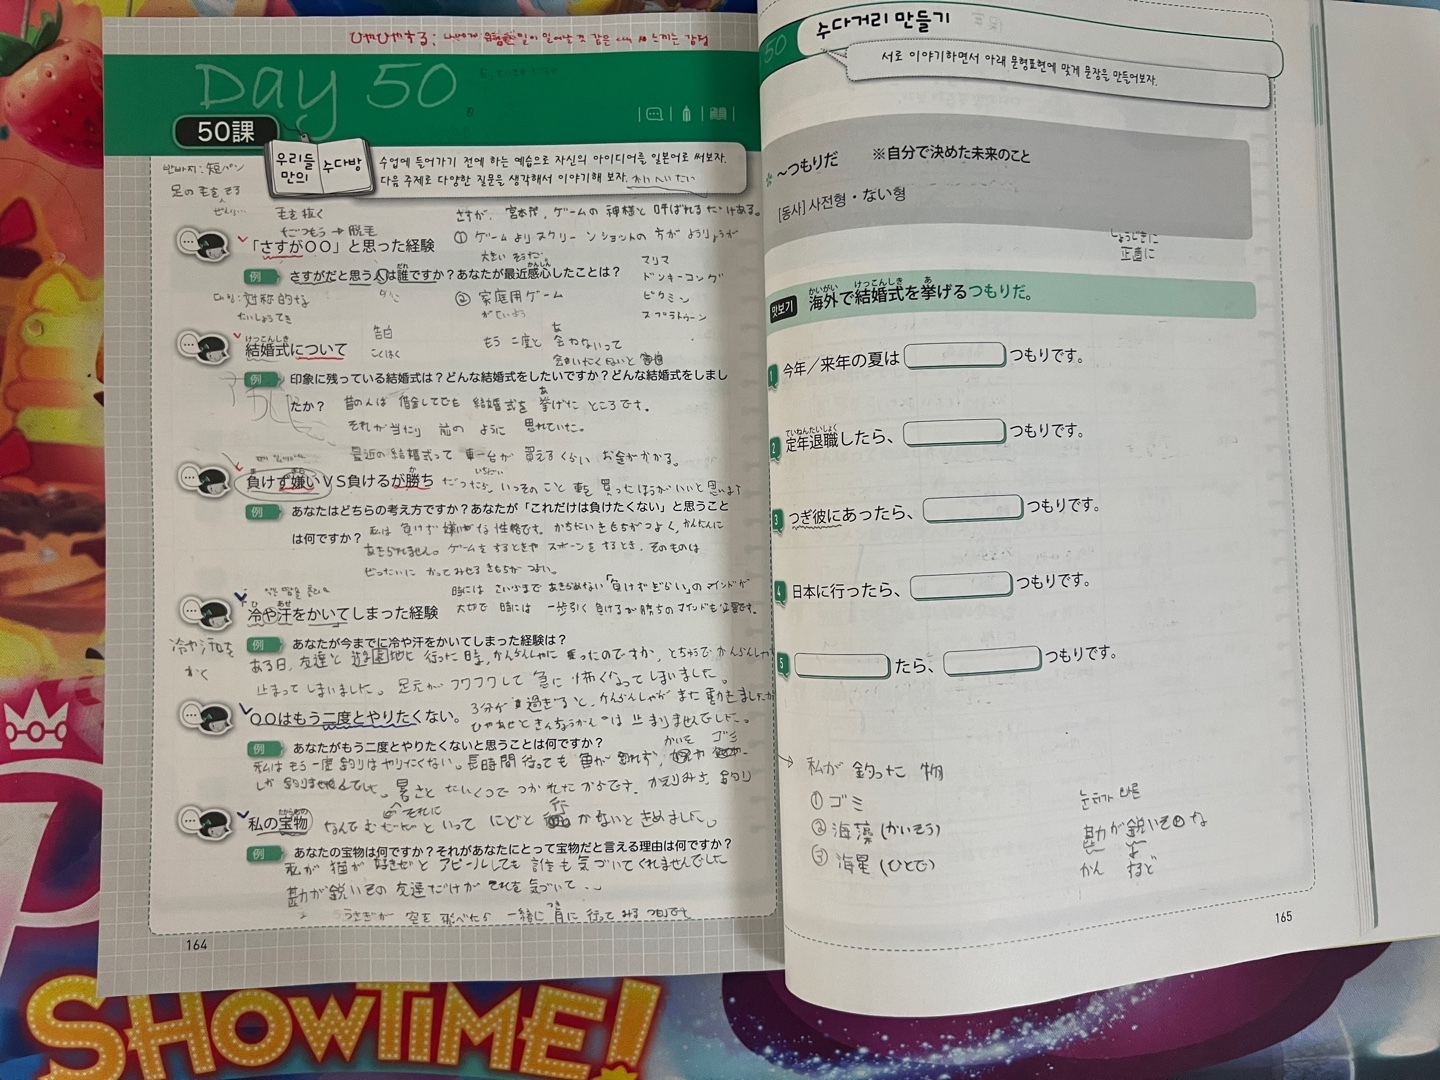 ひやひやする:
Day 50
50課
우리들만의 수다방
수업에 들어가기 전에 하는 예습으로 자신의 아이디어를 일본어로 써보자.
다음 주제로 다양한 질문을 생각해서 이야기해 보자.
반바지: 短パン
足の毛を そる
毛を抜く
だつもう → 脱毛
さすが、宮本茂、ゲームの神様と呼ばれるだけある。
「さすが〇〇」と思った経験
① ゲームよりスクリーンショットの方が
例 さすがだと思う人は誰ですか？あなたが最近感心したことは？
だれ
かんしん
マリオ
ドンキーコング
ピクミン
スプラトゥーン
対称的な
たいしょうてき
② 家庭用ゲーム
告白
こくはく
もう二度と会わないって
けっこんしき
結婚式について
例 印象に残っている結婚式は？どんな結婚式をしたいですか？どんな結婚式をしましたか？
昔の人は借金してでも結婚式を挙げたところです。
それが当たり前のように思れていた。
最近の結婚式って車一台が買えるくらいお金がかかる。
負けず嫌いVS負けるが勝ち
だったら、いっそのこと車を買ったほうがいいと思います
例 あなたはどちらの考え方ですか？あなたが「これだけは負けたくない」と思うことは何ですか？
私は負けず嫌いな性格です。かちたいきもちがつよく、かんたんに
あきられません。ゲームをするときやスポーツをするとき、そのものは
ぜったいにかってみせるきもちがつよい。
時にはさいごまであきらめない「負けずぎらい」のマインドが
大切で時には一歩引く負けるが勝ちのマインドも必要です。
冷や汗をかいてしまった経験
冷や汗を
かく
例 あなたが今までに冷や汗をかいてしまった経験は？
ある日、友達と遊園地に行った時、かんらんしゃに乗ったのですが、とちゅうでかんらんしゃが
止まってしまいました。足元がフワフワして急に怖くなってしまいました。
3分が過ぎると、かんらんしゃがまた動きましたが
ひやあせときんちょうかんは止まりませんでした。
〇〇はもう二度とやりたくない。
例 あなたがもう二度とやりたくないと思うことは何ですか？
かいそ ゴミ
私はもう一度釣りはやりたくない。長時間待っても魚が釣れず、
しか釣りませんでした。暑さとたいくつでつかれたからです。かえりみち、釣り
それに
なんてむだだといってにどと行かないときめました。
たからもの
私の宝物
例 あなたの宝物は何ですか？それがあなたにとって宝物だと言える理由は何ですか？
私が猫が好きぜとアピールしても誰も気づいてくれませんでした
勘が鋭いその友達だけがそれを気づいて..
うさぎが空を飛べたら一緒に月に行ってみるつもりです
164
50 수다거리 만들기
서로 이야기하면서 아래 문형표현에 맞게 문장을 만들어보자.
～つもりだ ※自分で決めた未来のこと
[동사] 사전형・ない형
しょうじきに
正直に
맛보기 海外で結婚式を挙げるつもりだ。
かいがい けっこんしき あ
1 今年／来年の夏は つもりです。
ていねんたいしょく
2 定年退職したら、 つもりです。
3 つぎ彼にあったら、 つもりです。
4 日本に行ったら、 つもりです。
5 たら、 つもりです。
→ 私が釣った物
① ゴミ
② 海藻 (かいそう)
③ 海星 (ひとで)
눈치가 빠른
勘が鋭い
かん
165
SHOWTIME!